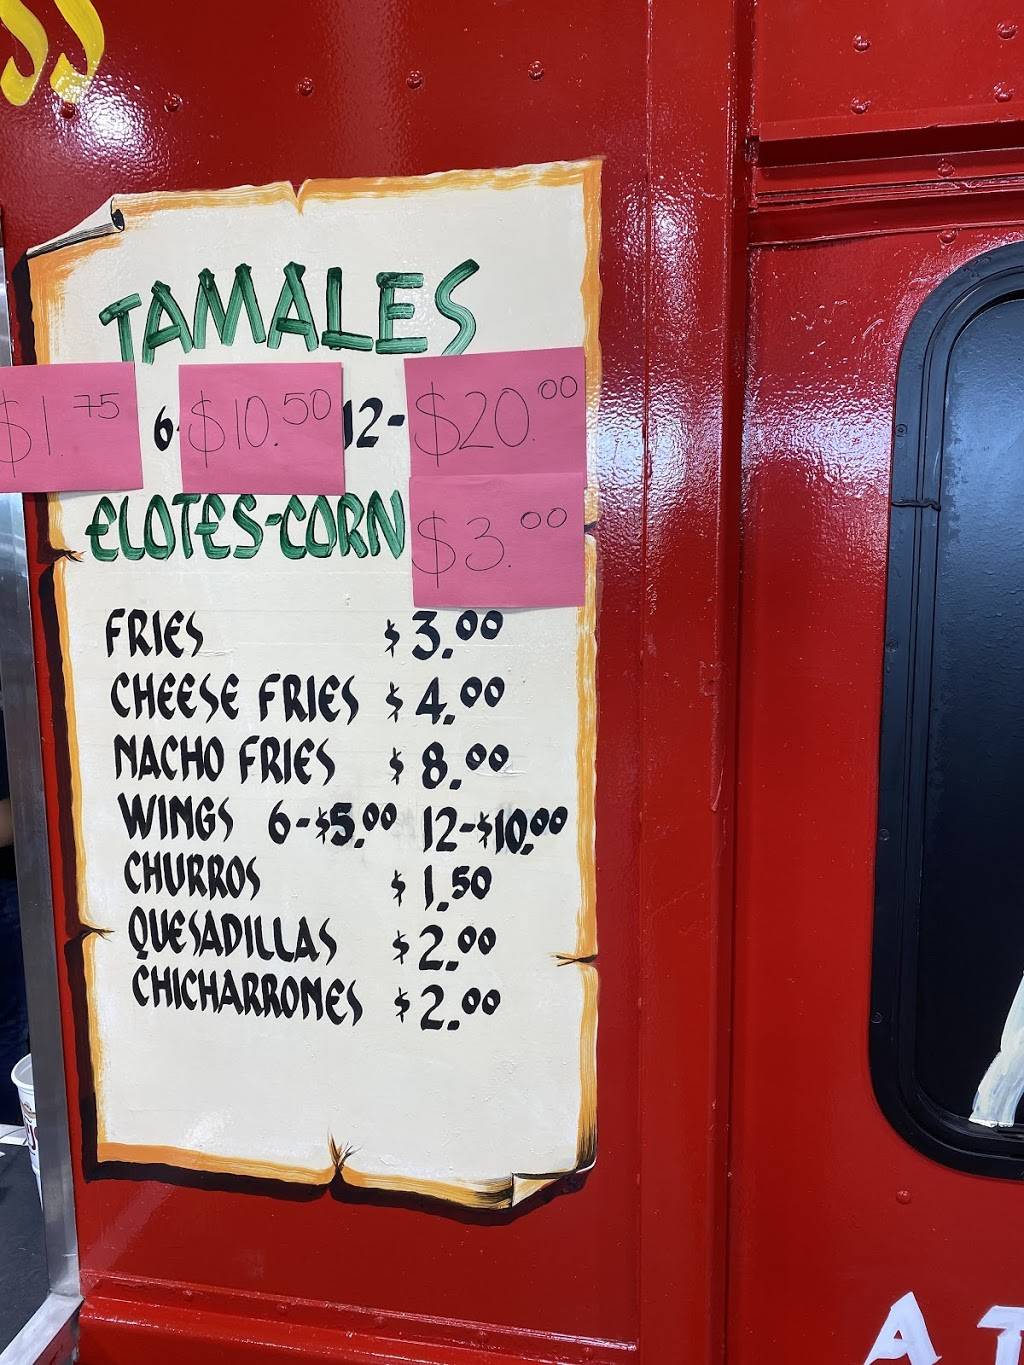 TAMALES
$1.75 6- $10.50 12- $20.00
ELOTES-CORN $3.00
FRIES $3.00
CHEESE FRIES $4.00
NACHO FRIES $8.00
WINGS 6-$5.00 12-$10.00
CHURROS $1.50
QUESADILLAS $2.00
CHICHARRONES $2.00